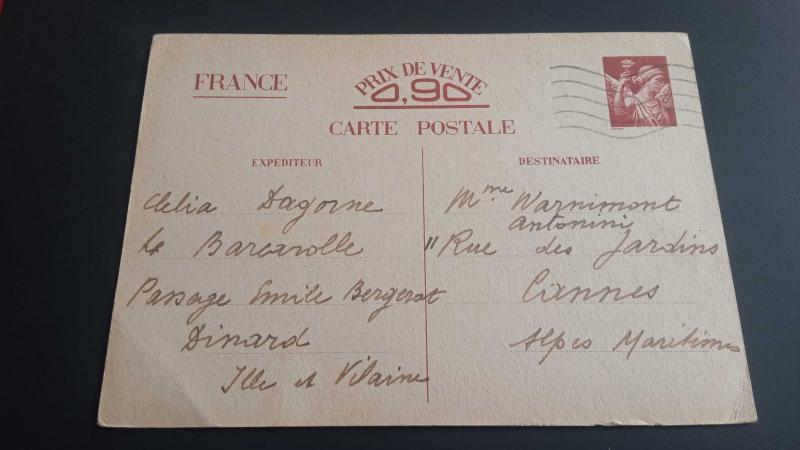 FRANCE
PRIX DE VENTE
0,90
CARTE POSTALE
EXPÉDITEUR
Clelia Dagorne
La Barcarolle
Passage Emile Bergerat
Dinard
Ille et Vilaine
DESTINATAIRE
Mme. Warnimont
Antonini
11 Rue des Jardins
Cannes
Alpes Maritimes